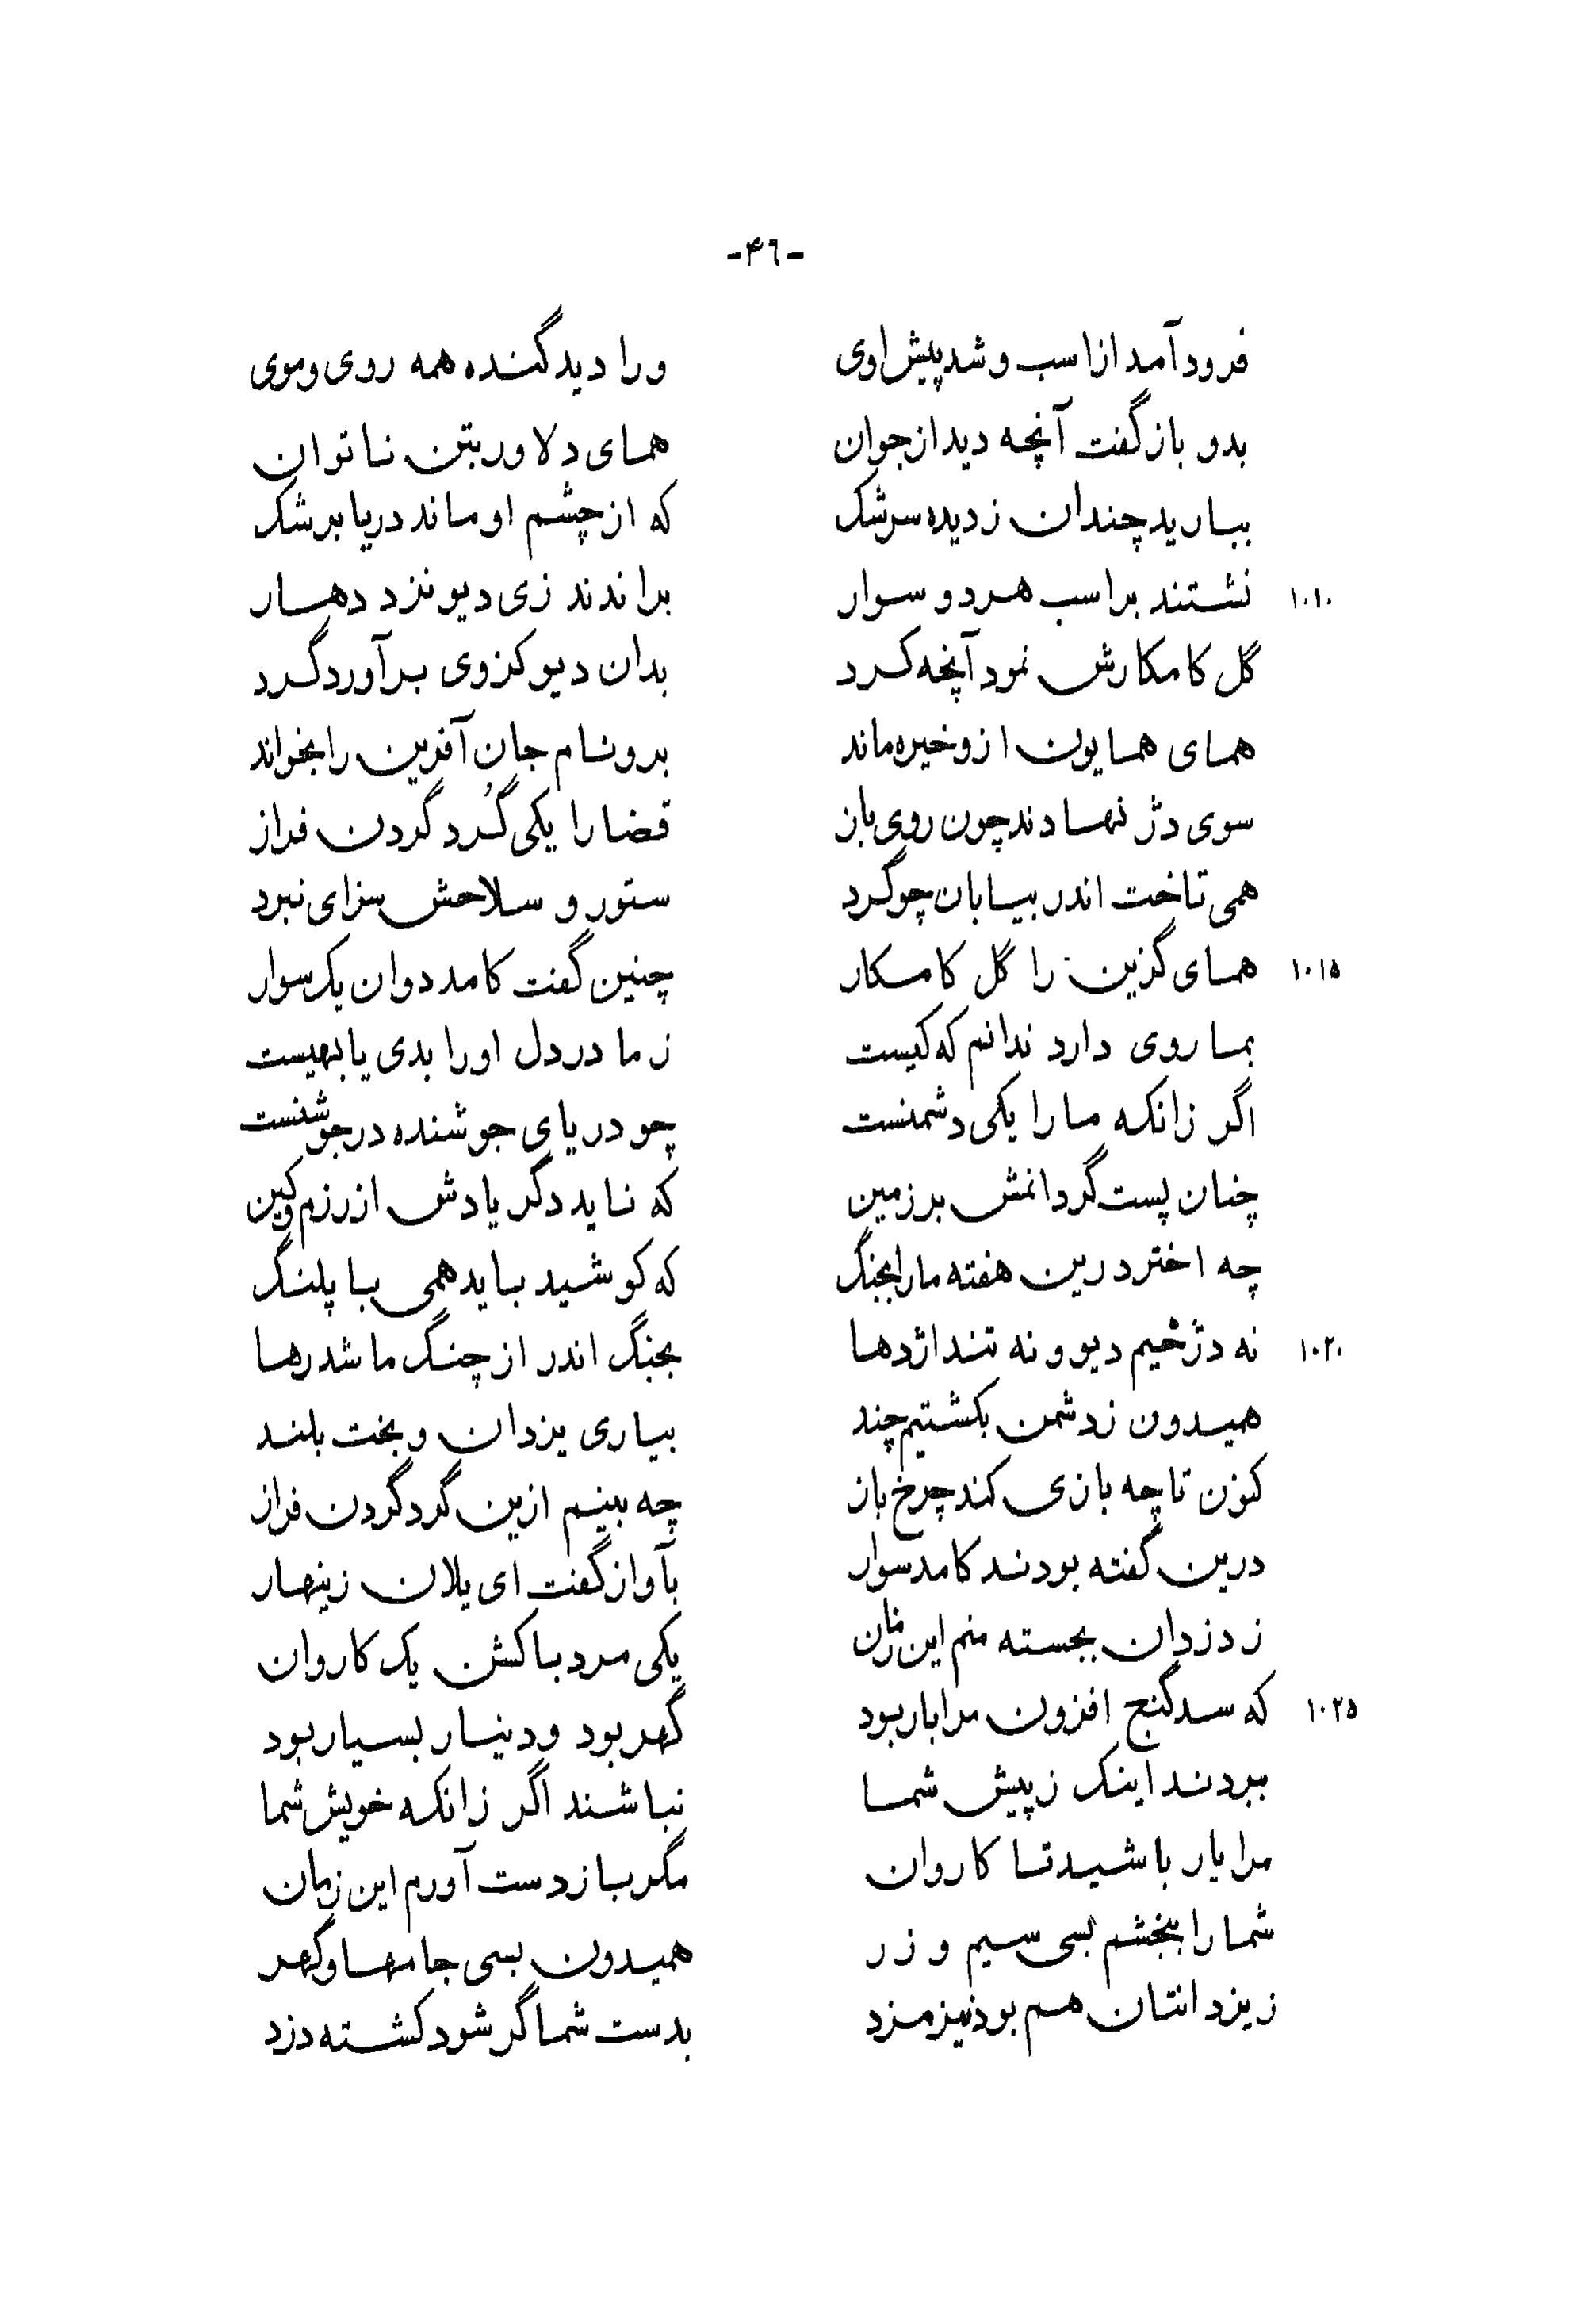 -۴۶-
فرود آمد از اسب و شد پیش اوی ورا دید گنده همه روی و موی
بدو باز گفت آنچه دید از جوان همای دلاور بتن ناتوان
ببارید چندان ز دیده سرشک که از چشم او ماند دریا برشک
۱۰۱۰ نشتند بر اسب هر دو سوار براندند زی دیو نزد دهار
گل کامکارش نمود آنچه کرد بدان دیو کزوی برآورد گرد
همای همایون ازو خیره ماند برو نام جان آفرین را بخواند
سوی دژ نهادند چون روی باز قضا را یکی گُرد گردن فراز
همی تاخت اندر بیابان چو گرد ستور و سلاحش سزای نبرد
۱۰۱۵ همای گزین را گل کامکار چنین گفت کامد دوان یک سوار
بما روی دارد ندانم که کیست ز ما در دل او را بدی یا بهیست
اگر زانکه ما را یکی دشمنست چو دریای جوشنده در جوشنست
چنان پست گردانمش بر زمین که ناید دگر یادش از رزم و کین
چه اختر درین هفته ما را بجنگ که کوشید باید همی با پلنگ
۱۰۲۰ نه دژخیم دیو و نه تند اژدها بجنگ اندر از چنگ ما شد رها
همیدون ز دشمن بکشتیم چند بیاری یزدان و بخت بلند
کنون تا چه بازی کند چرخ باز چه بینم ازین گرد گردن فراز
درین گفته بودند کامد سوار بآواز گفت ای یلان زینهار
ز دزدان بجسته منم این زمان یکی مرد با کش یک کاروان
۱۰۲۵ که سد گنج افزون مرا بار بود گهر بود و دینار بسیار بود
ببردند اینک ز پیش شما نباشند اگر زانکه خویش شما
مرا یار باشید تا کاروان مگر باز دست آورم این زمان
شما را ببخشم بسی سیم و زر همیدون بسی جامها و گهر
ز یزدانتان هم بود نیز مزد بدست شما گر شود کشته دزد